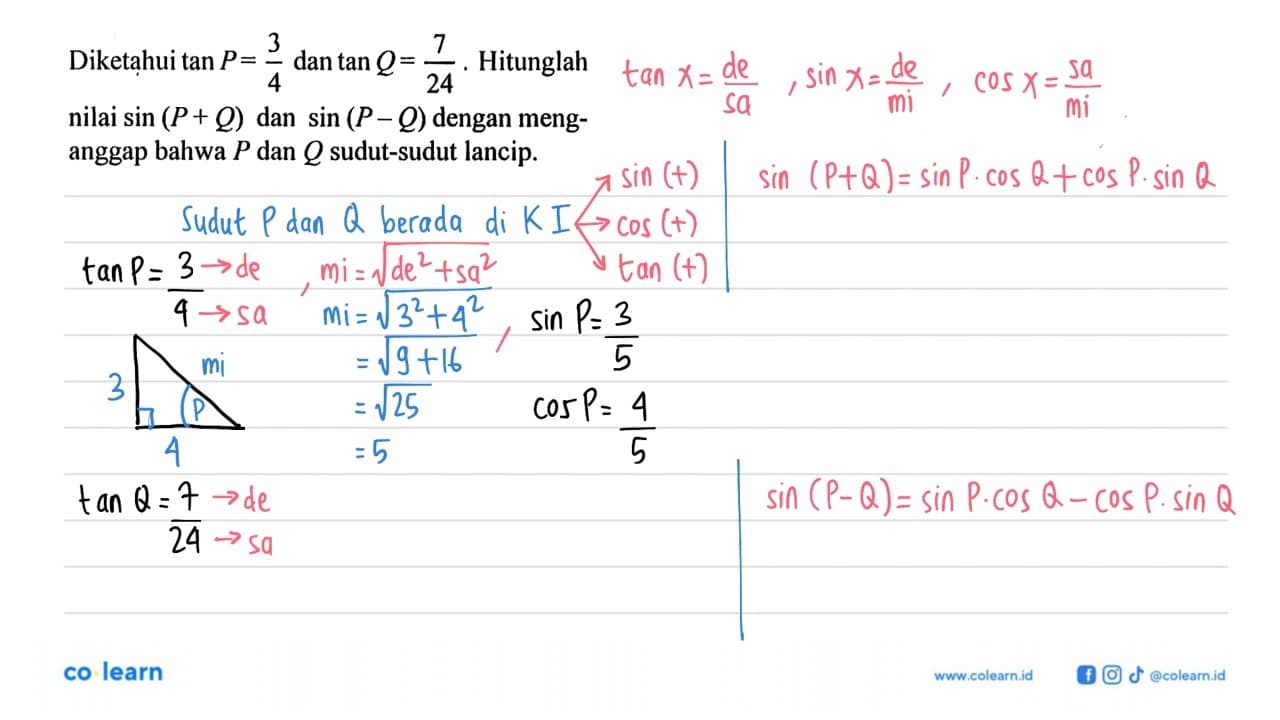 Diketahui tan P = 3/4 dan tan Q = 7/24 . Hitunglah
nilai sin (P + Q) dan sin (P – Q) dengan meng-
anggap bahwa P dan Q sudut-sudut lancip.
tan x = de/sa , sin x = de/mi , cos x = sa/mi
Sudut P dan Q berada di K I → sin (+)
→ cos (+)
→ tan (+)
sin (P+Q) = sin P · cos Q + cos P · sin Q
tan P = 3 → de / 4 → sa , mi = √de² + sa²
mi = √3² + 4²
= √9 + 16
= √25
= 5
, sin P = 3/5
cos P = 4/5
3
mi
P
4
tan Q = 7 → de / 24 → sa
sin (P – Q) = sin P · cos Q – cos P · sin Q
co learn
www.colearn.id
@colearn.id